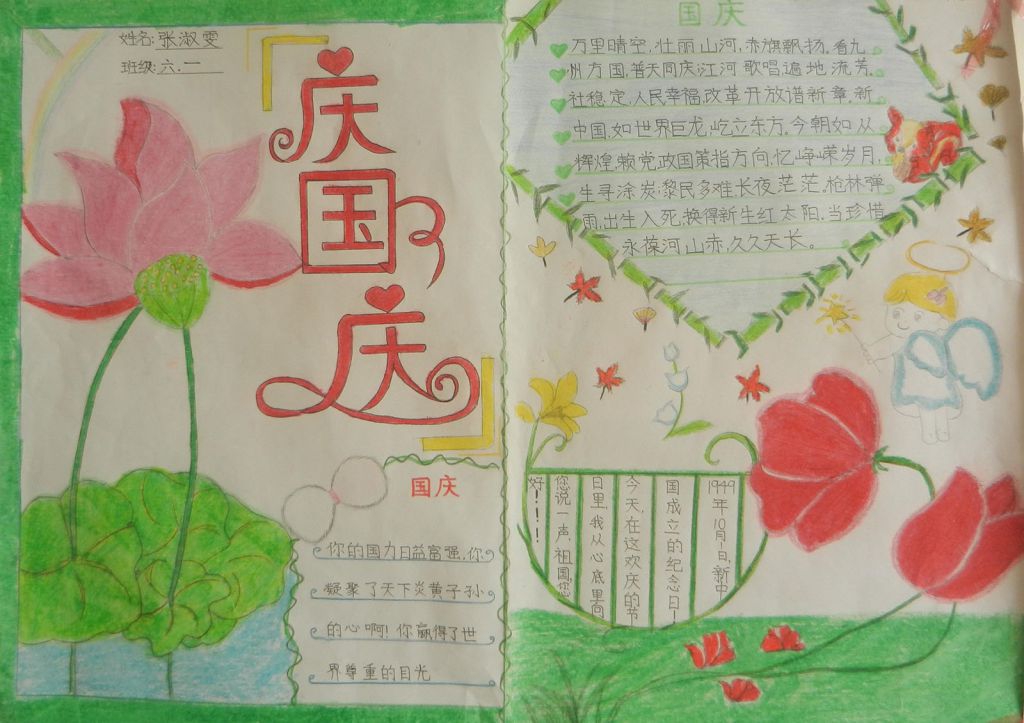 姓名:张淑雯
班级:六.一
庆
国
庆
国庆
你的国力日益富强,你
凝聚了天下炎黄子孙
的心啊!你赢得了世
界尊重的目光
国庆
万里晴空,壮丽山河,赤旗飘扬,看九
州方国,普天同庆;江河歌唱,遍地流芳.
社稳定,人民幸福,改革开放谱新章,新
中国,如世界巨龙,屹立东方.今朝如从
辉煌,赖党政国策指方向,忆峥嵘岁月,
生寻涂炭;黎民多难长夜茫茫.枪林弹
雨,出生入死,换得新生红太阳.当珍惜
永葆河山赤,久久天长。
1949年10月1日,新中
国成立的纪念日!
今天,在这欢庆的节
日里,我从心底里向
您说一声祖国,您
好!!!!